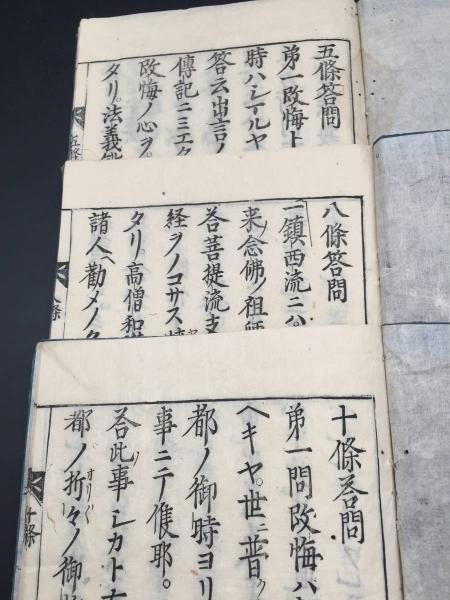 五條答問
第一改悔ト
時ハシイルヤ
答云出言ノ
傳記ニミエタ
改悔ノ心ヲ。
タリ。法義
五條
八條答問
一鎮西流ニハ。
来念佛ノ祖師
答菩提流支
経ヲノコサス
タリ。高僧和
諸人ヘ勸メノ
八條
十條答問
第一問改悔ハ
ヘキヤ。世ニ普ク
都ノ御時ヨリ
事ニテ候耶。
答此事シカト
都ノ折々ノ御
おりく
十條